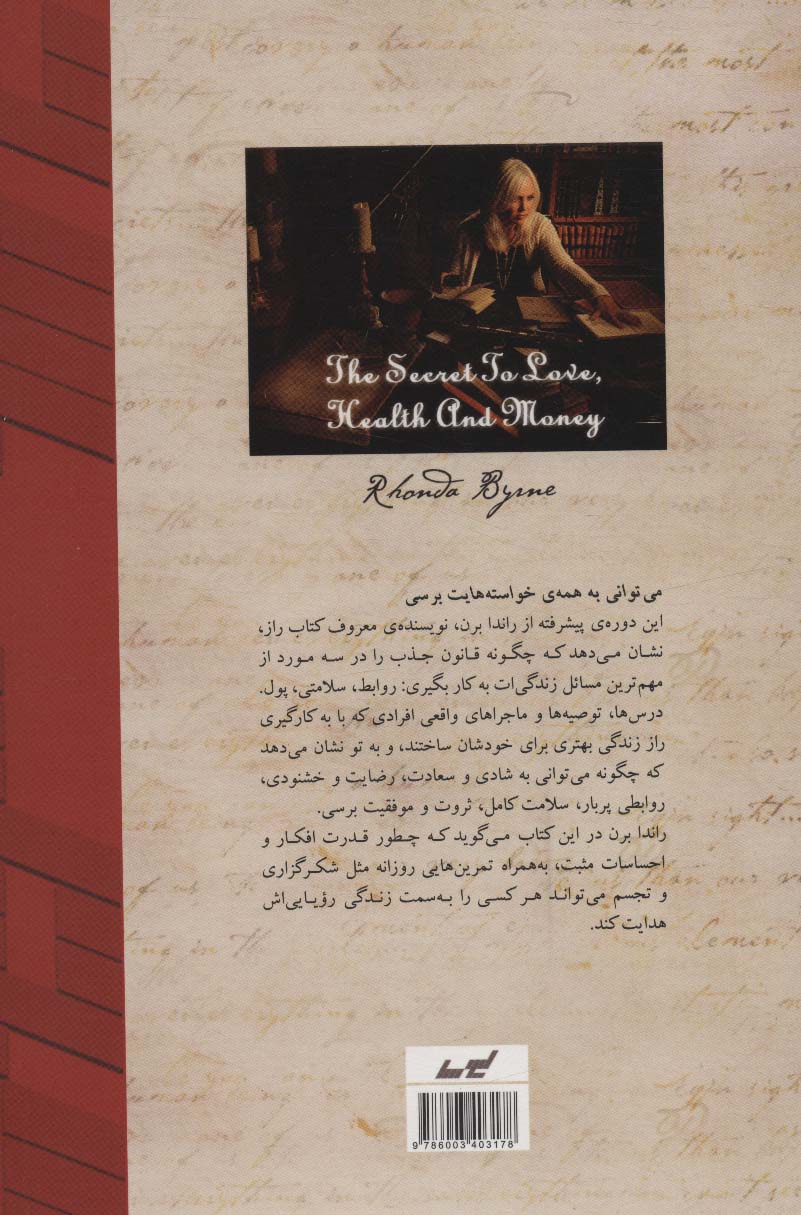 The Secret To Love,
Health And Money
Rhonda Byrne
می‌توانی به همه‌ی خواسته‌هایت برسی
این دوره‌ی پیشرفته از راندا برن، نویسنده‌ی معروف کتاب راز،
نشان می‌دهد که چگونه قانون جذب را در سه مورد از
مهم‌ترین مسائل زندگی‌ات به کار بگیری: روابط، سلامتی، پول.
درس‌ها، توصیه‌ها و ماجراهای واقعی افرادی که با به کارگیری
راز زندگی بهتری برای خودشان ساختند، و به تو نشان می‌دهد
که چگونه می‌توانی به شادی و سعادت، رضایت و خشنودی،
روابطی پربار، سلامت کامل، ثروت و موفقیت برسی.
راندا برن در این کتاب می‌گوید که چطور قدرت افکار و
احساسات مثبت، به‌همراه تمرین‌هایی روزانه مثل شکرگزاری
و تجسم می‌تواند هر کسی را به‌سمت زندگی رؤیایی‌اش
هدایت کند.
9 786003 403178